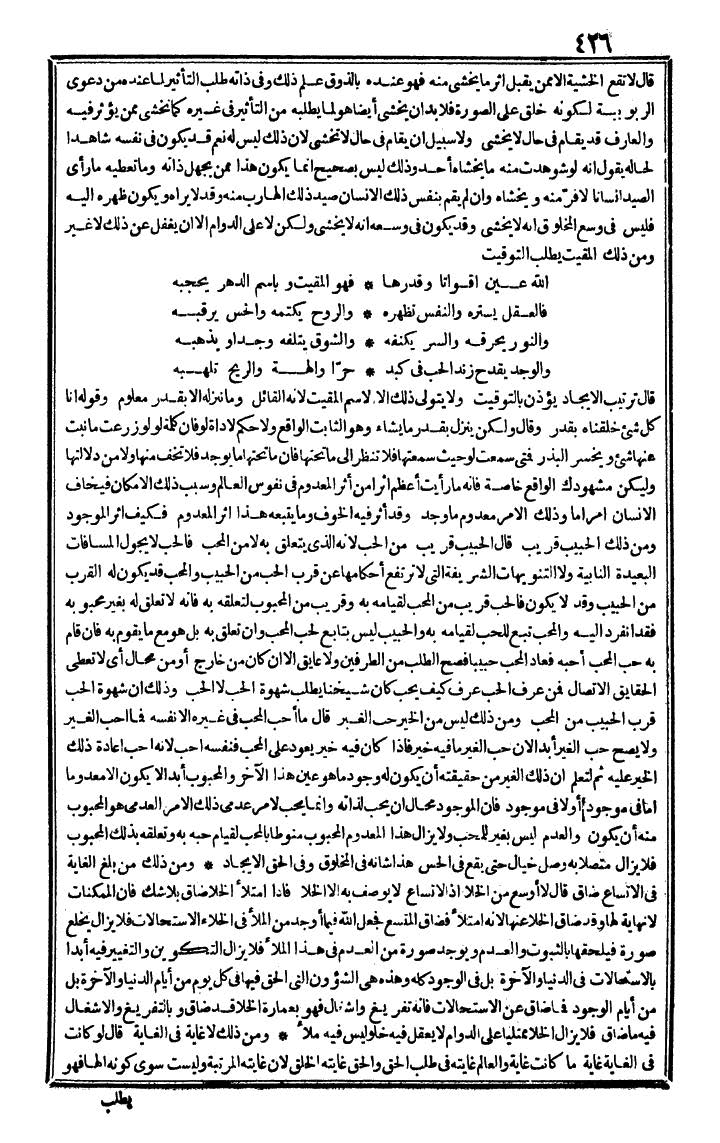 ٤٣٦
قال لا تقع الخشية الا ممن يقبل اثر ما يخشى منه فهو عنده بالذوق علم ذلك وفى ذاته طلب التأثير لما عنده من دعوى
الربوبية لكونه خلق على الصورة فلا بد ان يخشى أيضا هو لما يطلبه من التأثير فى غيره كما تخشى ممن يؤثر فيه
والعارف قد يقام فى حال لا يخشى ولا سبيل ان يقام فى حال لا تخشى لان ذلك ليس له نعم قد يكون فى نفسه شاهدا
لحاله يقول انه لو شوهدت منه ما يخشاه أحد وذلك ليس بصحيح انما يكون هذا ممن يجهل ذاته وما تعطيه ما رأى
الصيد انسانا لا فرّ منه ويخشاه وان لم يقم بنفس ذلك الانسان صيد ذلك الهارب منه وقد لا يراه ويكون ظهره اليه
فليس فى وسع المخلوق انه لا يخشى وقد يكون فى وسعه انه لا يخشى ولكن لا على الدوام الا ان يغفل عن ذلك لا غير
ومن ذلك المقيت يطلب التوقيت
الله عـين اقواتا وقدرها * فهو المقيت وباسم الدهر يحجبه
فالعـقل يستره والنفس تظهره * والروح يكتمه والحس يرقبـه
والنور يحرقـه والسر يكنفه * والشوق يتلفه وجدا ويذهبـه
والوجد يقدح زند الحب فى كبد * حرّا والهـة والريح تلهـبه
قال ترتيب الايجاد يؤذن بالتوقيت ولا يتولى ذلك الا الاسم المقيت لانه القائل وما ننزله الا بقدر معلوم وقوله انا
كل شئ خلقناه بقدر وقال ولكن ينزل بقدر ما يشاء وهو الثابت الواقع ولا حكم لاداة لو فان كلمة لو لو زرعت ما نبت
عنها شئ ويخسر البذر فتى سمعت لو حيث سمعتها فلا تنظر الى ما تحتها فان ما تحتها ما يوجد فلا تخف منها ولا من دلالتها
وليكن مشهودك الواقع خاصة فانه ما رأيت أعظم اثرا من أثر المعدوم فى نفوس العالم وسبب ذلك الامكان فيخاف
الانسان امرا ما وذلك الامر معدوم ما وجد وقد أثر فيه الخوف وما يتبعه هذا اثر المعدوم فكيف اثر الموجود
ومن ذلك الحبيب قريب قال الحبيب قريب من الحب لانه الذى يتعلق به لا من المحب فالحب لا يحول المسافات
البعيدة النابية ولا التنويهات الشريفة التى لا ترتفع أحكامها عن قرب الحب من الحبيب والمحب قد يكون له القرب
من الحبيب وقد لا يكون فالحب قريب من المحب لقيامه به وقريب من المحبوب لتعلقه به فانه لا تعلق له بغير محبوبه
فقد انفرد اليه والمحب تبع للحب لقيامه به والحبيب ليس بتابع لحب المحب وان تعلق به بل هو مع ما يقوم به فان قام
به حب المحب أحبه فعاد المحب حبيبا فصح الطلب من الطرفين ولا عايق الا ان كان من خارج أو من محال أى لا تعطى
الحقايق الاتصال فمن عرف الحب عرف كيف يحب كان شيخنا يطلب شهوة الحب لا الحب وذلك ان شهوة الحب
قرب الحبيب من المحب ومن ذلك ليس من الخير حب الغير قال ما أحب المحب فى غيره الا نفسه فما احب الغير
ولا يصح حب الغير أبدا لان حب الغير ما فيه خير فاذا كان فيه خير يعود على المحب فنفسه احب لانه احب اعادة ذلك
الخير عليه ثم لتعلم ان ذلك الغير من حقيقته أن يكون له وجود ما هو عين هذا الآخر والمحبوب أبدا لا يكون الا معدوما
اما فى موجود أولا فى موجود فان الموجود محال ان يحب لذاته وانما يحب لامر عدمى ذلك الامر العدمى هو المحبوب
منه أن يكون والعدم ليس بغير للمحب ولا يزال هذا المعدوم المحبوب منوطا بالمحب لقيام حبه به وتعلقه بذلك المحبوب
فلا يزال متصلا به وصل خيال حتى يقع فى الحس هذا شانه فى المخلوق وفى الحق الايجاد * ومن ذلك من بلغ الغاية
فى الاتساع ضاق قال لا أوسع من الخلا اذ الاتساع لا يوصف به الا الخلا فاذا امتلأ الخلا ضاق بلا شك فان الممكنات
لا نهاية لها وقد ضاق الخلا عنها لانه امتلأ فضاق المتسع فجعل الله فيما أوجد من الملأ فى الخلاء الاستحالات فلا يزال يخلع
صورة فيلحقها بالثبوت والعدم ويوجد صورة من العدم فى هذا الملأ فلا يزال التكوين والتغيير فيه أبدا
بالاستحالات فى الدنيا والآخرة بل فى الوجود كله وهذه هى الشؤون التى الحق فيها فى كل يوم من أيام الدنيا والآخرة بل
من أيام الوجود فما ضاق عن الاستحالات فانه تفريغ واشتغال فهو بعمارة الخلا قد ضاق وبالتفريغ والاشغال
فيه ما ضاق فلا يزال الخلا ممتليا على الدوام لا يعقل فيه خلو ليس فيه ملأ * ومن ذلك لا غاية فى الغاية قال لو كانت
فى الغاية غاية ما كانت غاية والعالم غايته فى طلب الحق والحق غايته الخلق لان غايته المرتبة وليست سوى كونه الها فهو
يطلب